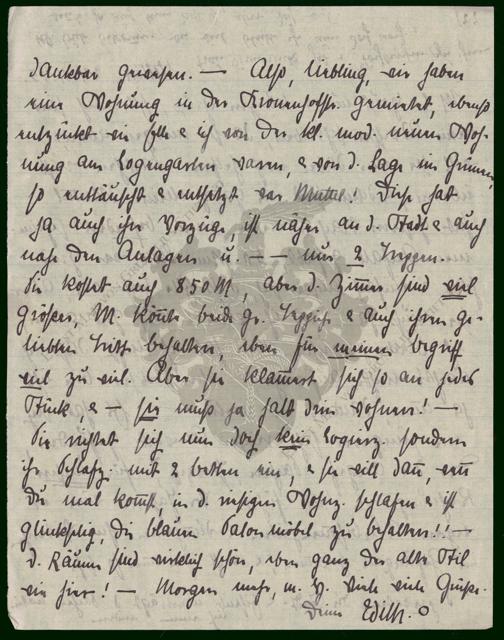 dankbar gewesen. — Also, Liebling, wir haben
eine Wohnung in der Kronenhofstr. gemietet, ebenso
entzückt wie Elle & ich von der kl. mod. neuen Woh-
nung am Logengarten waren, & von d. Lage im Grünen,
so enttäuscht & entsetzt war Mutter! Diese hat
ja auch ihre Vorzüge, ist näher an d. Stadt & auch
nahe den Anlagen u. — — nur 2 Treppen.
Sie kostet auch 850 M, aber d. Zimmer sind viel
größer, M. könnte beide gr. Teppiche & auch ihren ge-
liebten behalten, eben für meinen Begriff
viel zu viel. Aber sie klammert sich so an jedes
Stück, & — sie muß ja halt drin wohnen! —
Sie richtet sich nun doch kein Logierz. sondern
ihr Schlafz. mit 2 Betten ein, & sie will dann, wenn
Du mal kommst, in d. riesigen Wohnz. schlafen & ist
glückselig, die blauen Salonmöbel zu behalten!! —
d. Räume sind wirklich schön, eben ganz der alte Stil
wie hier! — Morgen mehr, m. V. viele viele Grüße.
Deine Edith.